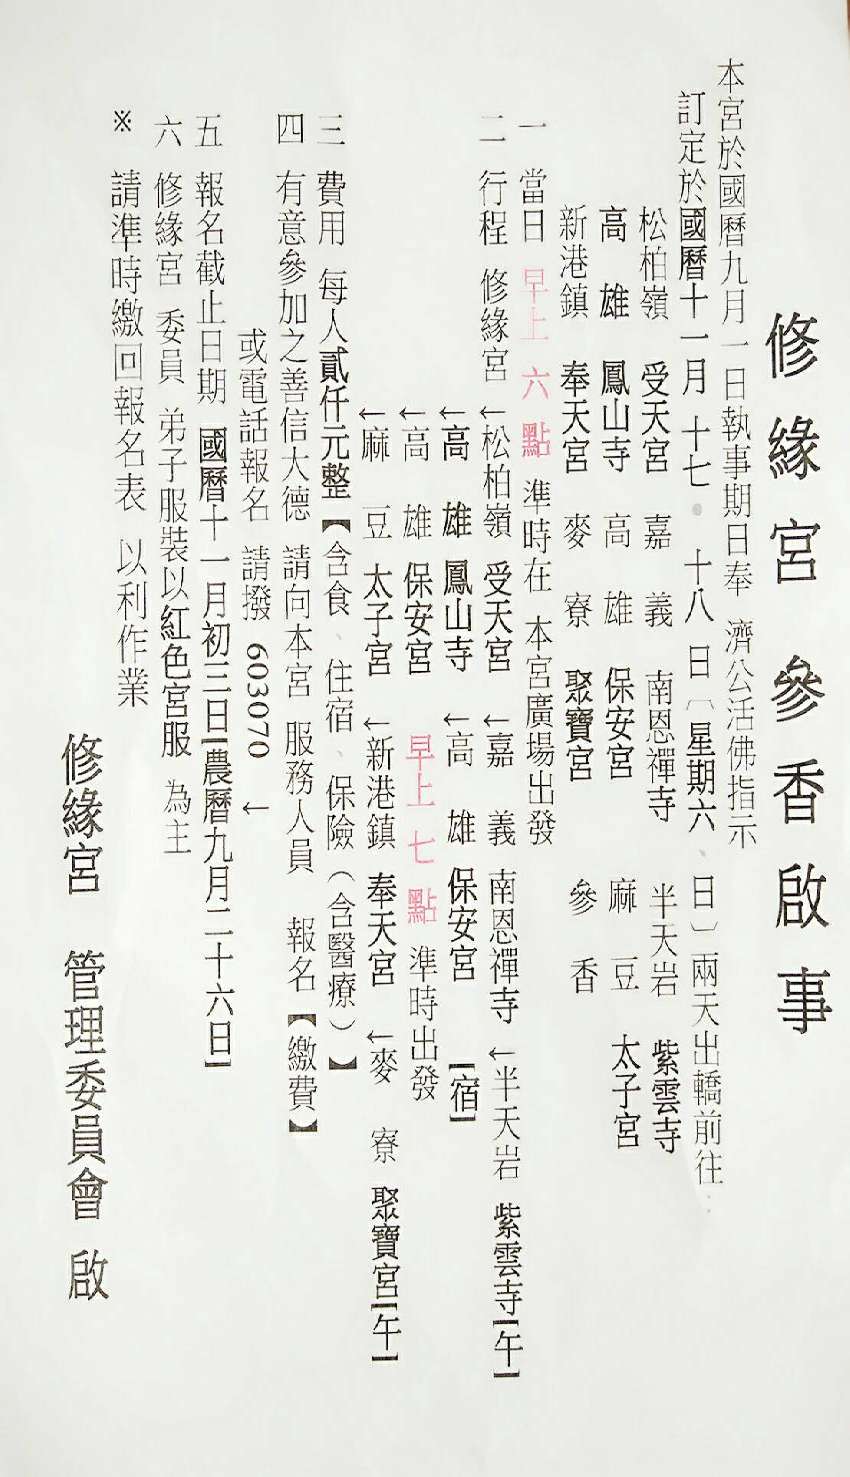 修緣宮 參香啟事
本宮於國曆九月一日執事期日奉 濟公活佛指示
訂定於國曆十一月 十七。 十八 日〔星期六、日〕兩天出轎前往：
松柏嶺 受天宮 嘉 義 南恩禪寺 半天岩 紫雲寺
高 雄 鳳山寺 高 雄 保安宮 麻 豆 太子宮
新港鎮 奉天宮 麥 寮 聚寶宮 參 香
一 當日 早上 六 點 準時在 本宮廣場出發
二 行程 修緣宮 ↓松柏嶺 受天宮 ↓嘉 義 南恩禪寺 ↓半天岩 紫雲寺【午】
↓高 雄 鳳山寺 ↓高 雄 保安宮 【宿】
↓高 雄 保安宮 早上 七 點 準時出發
↓麻 豆 太子宮 ↓新港鎮 奉天宮 ↓麥 寮 聚寶宮【午】
三 費用 每人貳仟元整【含食、住宿、保險（含醫療）】
四 有意參加之善信大德 請向本宮 服務人員 報名【繳費】
或電話報名 請撥 603070 ↓
五 報名截止日期 國曆十一月初三日【農曆九月二十六日】
六 修緣宮 委員 弟子服裝以紅色宮服 為主
※ 請準時繳回報名表 以利作業
修緣宮 管理委員會 啟